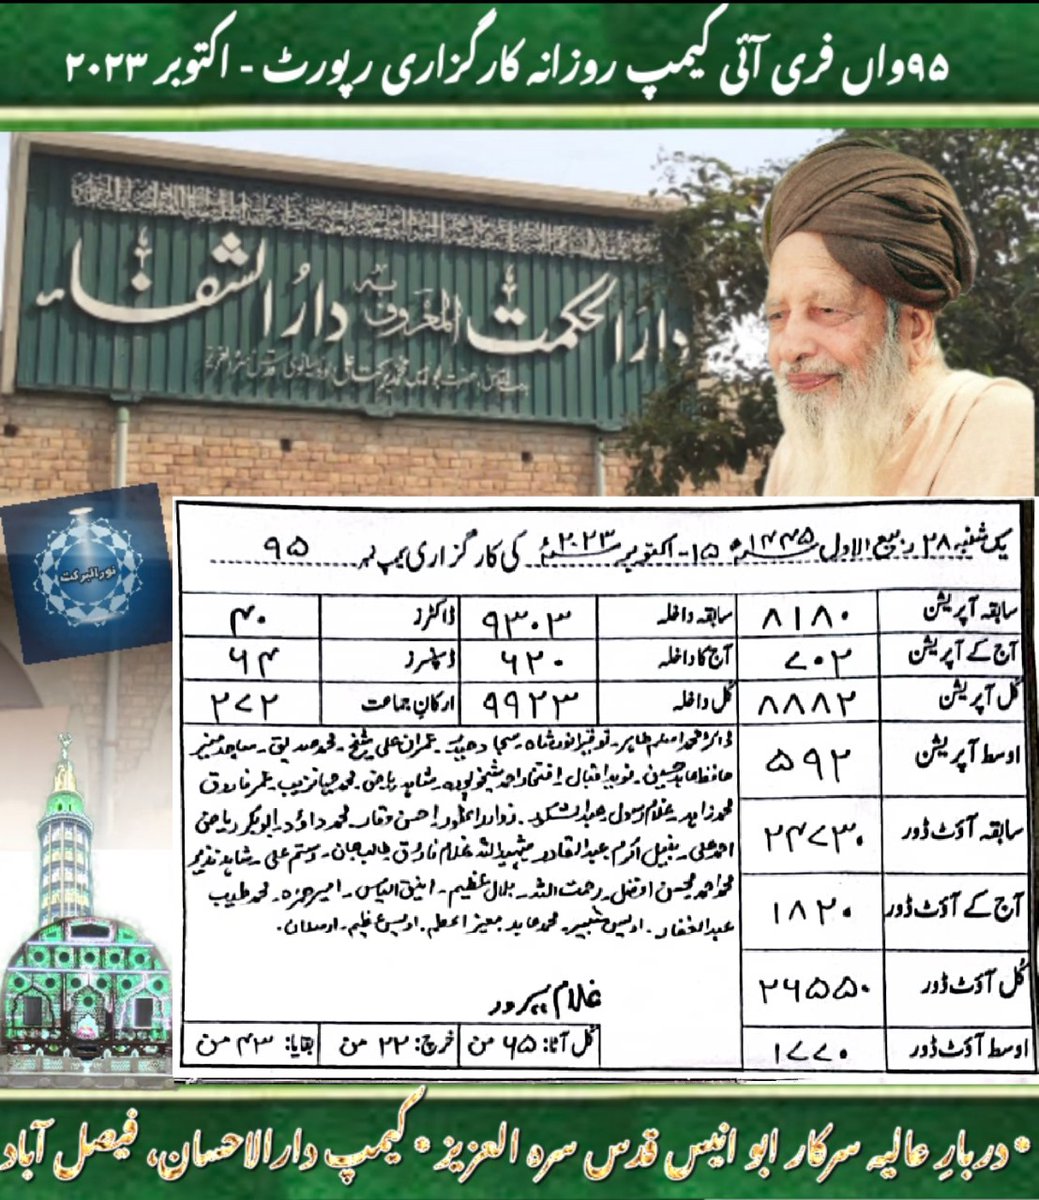 ۹۵واں فری آئی کیمپ روزانہ کارگزاری رپورٹ - اکتوبر ۲۰۲۳
دارالحکمت المعروف بہ دارالشفاء
نورالبرکت
یک شنبہ ۲۸ ربیع الاول ۱۴۴۵ھ ۱۵-اکتوبر ۲۰۲۳ء کی کارگزاری کیمپ نمبر ۹۵
سابقہ آپریشن ۸۱۸۰ سابقہ داخلہ ۹۳۰۳ ڈاکٹرز ۴۰
آج کے آپریشن ۷۰۲ آج کا داخلہ ۶۲۰ ڈسپنسرز ۶۴
کُل آپریشن ۸۸۸۲ کُل داخلہ ۹۹۲۳ ارکانِ جماعت ۲۷۲
اوسط آپریشن ۵۹۲
سابقہ آؤٹ ڈور ۲۴۷۳۰
آج کے آؤٹ ڈور ۱۸۲۰
کُل آؤٹ ڈور ۲۶۵۵۰
اوسط آؤٹ ڈور ۱۷۷۰
ڈاکٹر محمد اسلم طاہر۔ عمران علی شیخ۔ محمد صدیق۔ ساجد منیر
حافظ عابد حسین۔ نوید اقبال۔ افتخار احمد شیخوپورہ۔ شاہد ریاض۔ عمر فاروق
محمد زاہد۔ غلام رسول۔ عبدالشکور۔ احسن وقار۔ محمد داؤد۔ ابوبکر ریاض
احمد علی۔ اکرم۔ عبدالقادر۔ غلام فاروق۔ رستم علی۔ شاہد نذیر
محمد احمد۔ محسن افضل۔ رحمت اللہ۔ بلال عظیم۔ انیق الیاس۔ امیر حمزہ۔ محمد طیب
عبدالغفار۔ اویس شبیر۔ محمد عابد۔ معیز اعظم۔ اویس علیم۔ ارسلان۔
غلام سرور
کُل آٹا: ۶۵ من خرچ: ۲۲ من بقایا: ۴۳ من
* دربارِ عالیہ سرکار ابو انیس قدس سرہ العزیز * کیمپ دارالاحسان، فیصل آباد